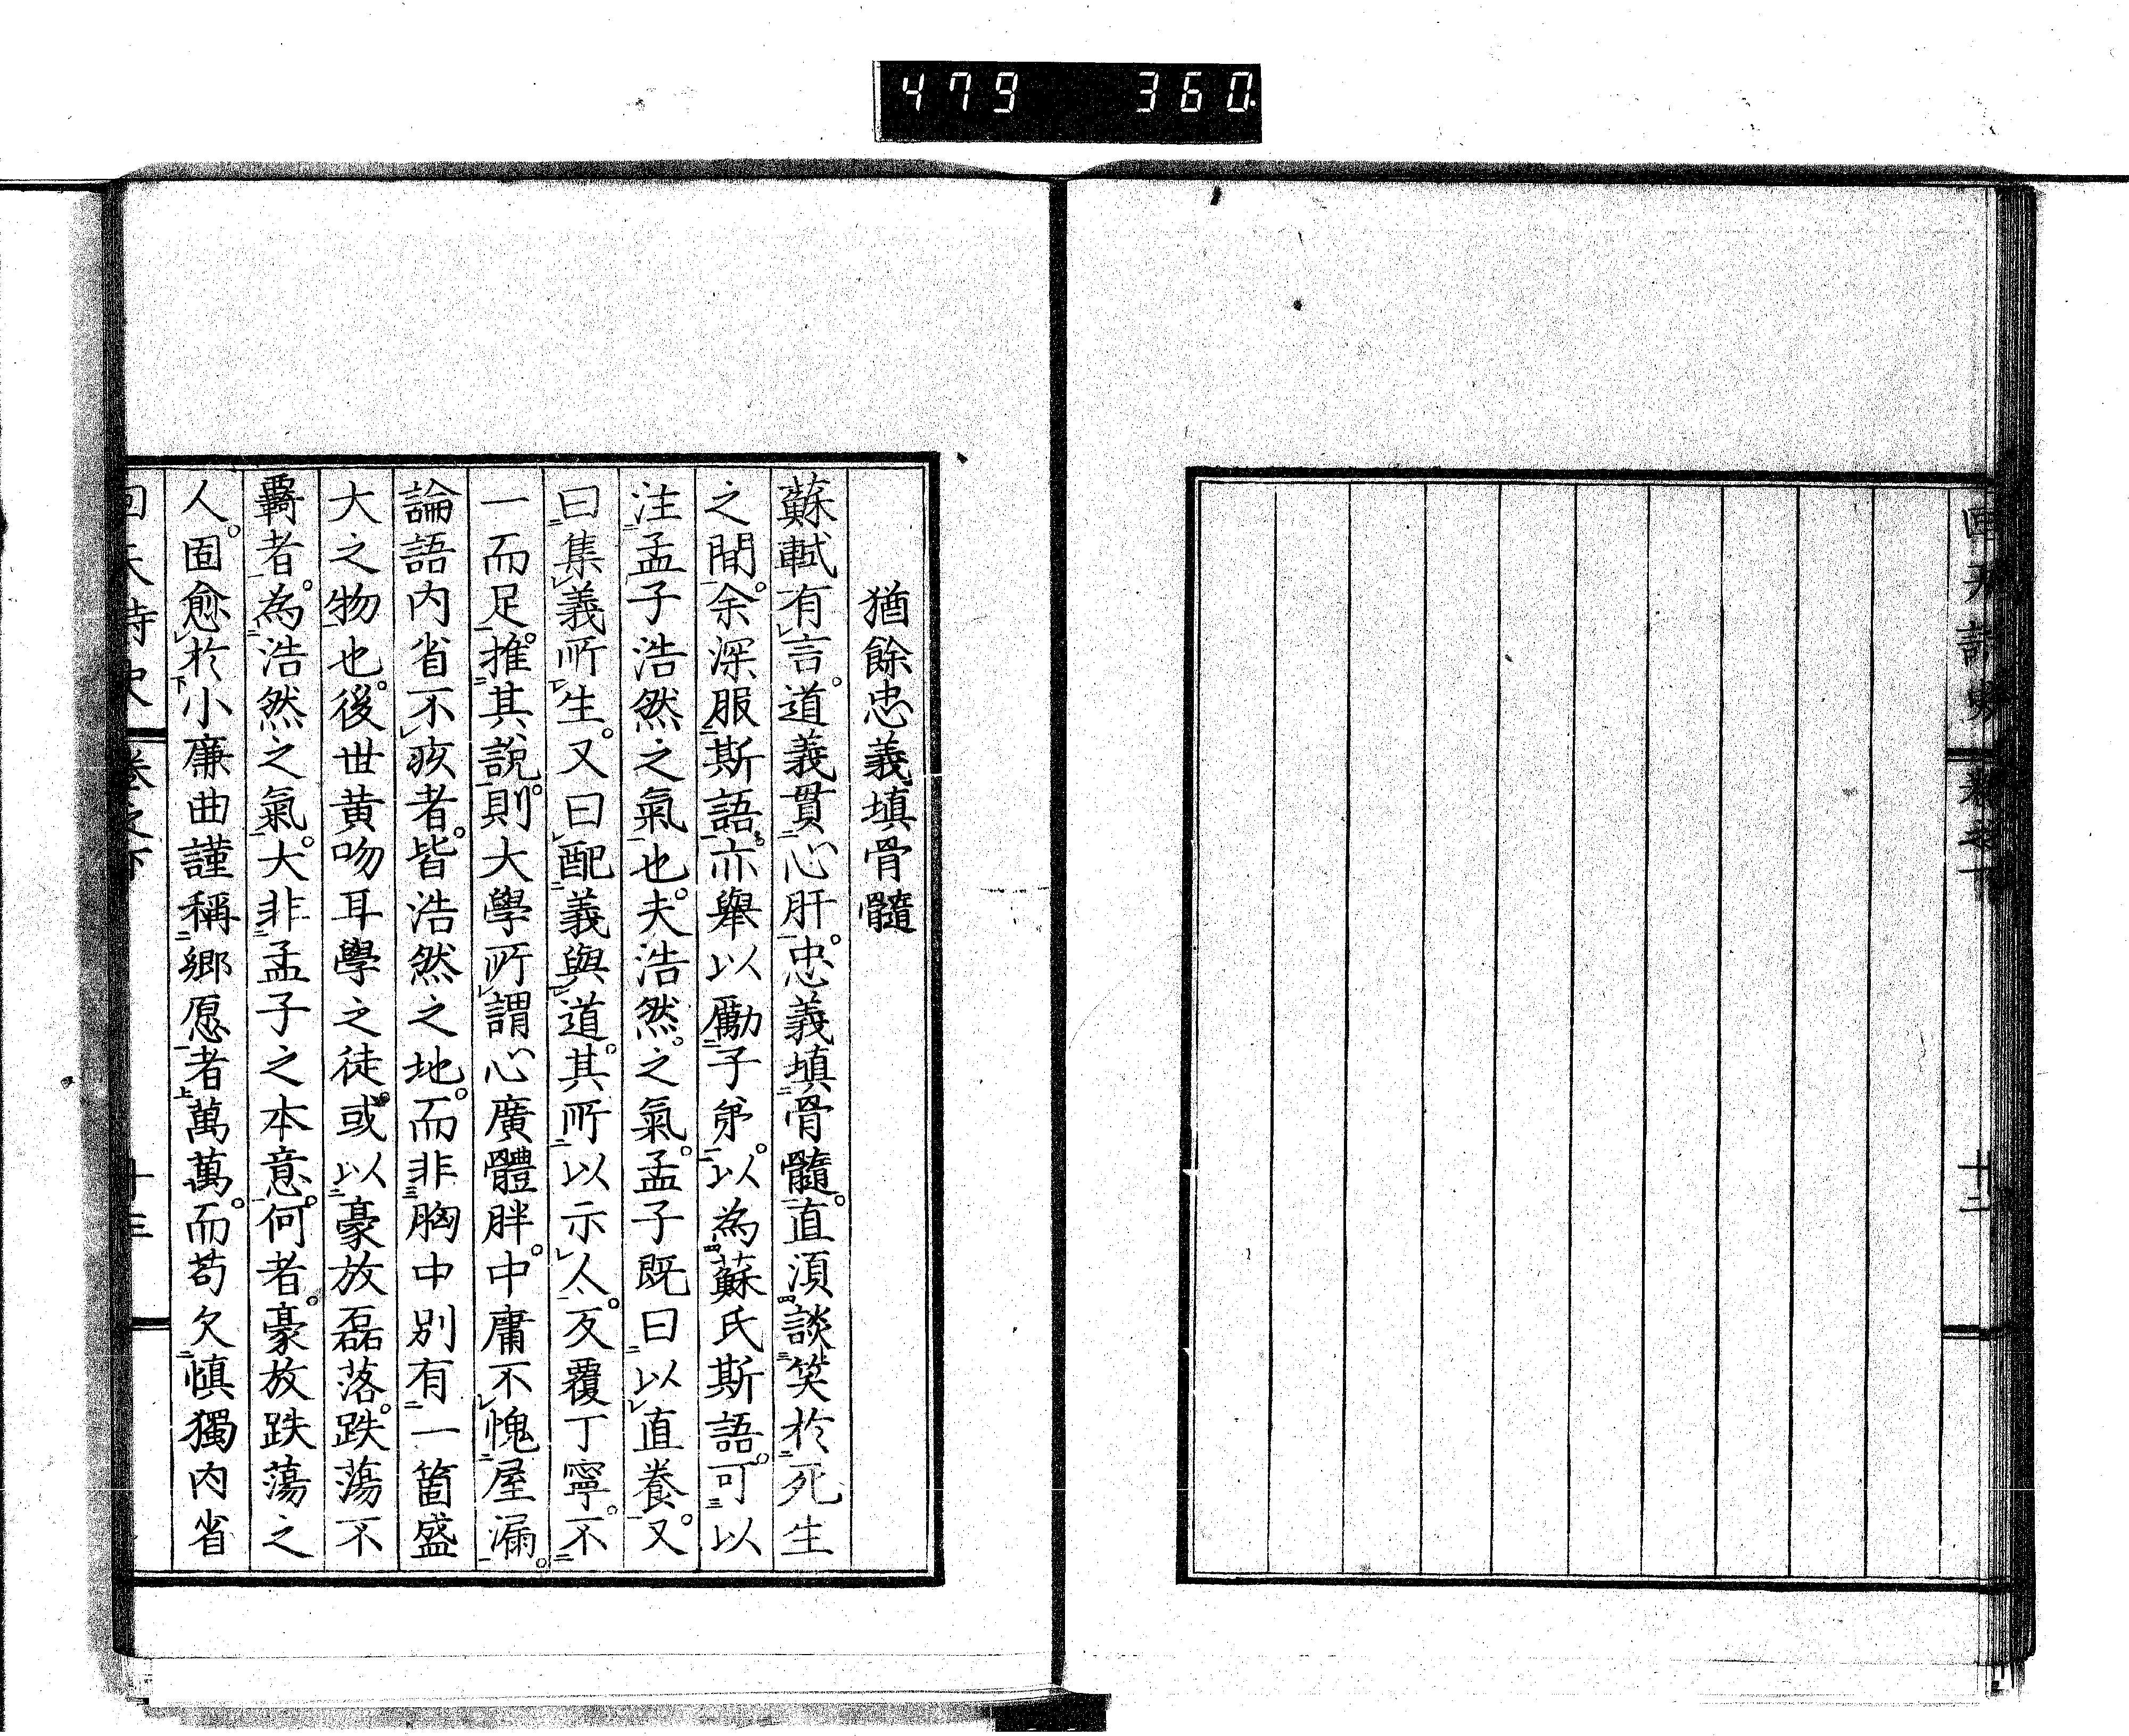 479 360
十二
猶餘忠義填骨髓
蘇軾有言。道義貫心肝。忠義填骨髓。直須談笑於死生
之間。余深服斯語。亦舉以勵子弟。以為蘇氏斯語。可以
注孟子浩然之氣也。夫浩然之氣。孟子既曰以直養。又
曰集義所生。又曰配義與道。其所以示人。反覆丁寧。不
一而足。推其說。則大學所謂心廣體胖。中庸不愧屋漏。
論語內省不疚者。皆浩然之地。而非胸中別有一箇盛
大之物也。後世黃吻耳學之徒。或以豪放磊落。跌蕩不
羇者。為浩然之氣。大非孟子之本意。何者。豪放跌蕩之
人。固愈於小廉曲謹稱鄉愿者萬萬。而苟欠慎獨內省
回天詩史 卷之下 十三